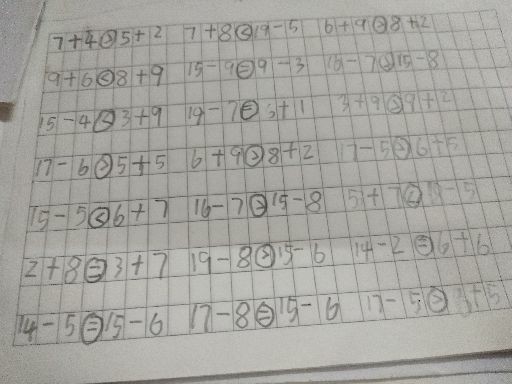 7+4>5+2 7+8<19-5 6+9>8+2
9+6<8+9 15-9=9-3 16-7>15-8
15-4<3+9 3+9>9+2
17-6>5+5 6+9>8+2 17-5>6+5
15-5<6+7 16-7>15-8
2+8=3+7 19-8>15-6 14-2=6+6
14-5=15-6 17-8=15-6